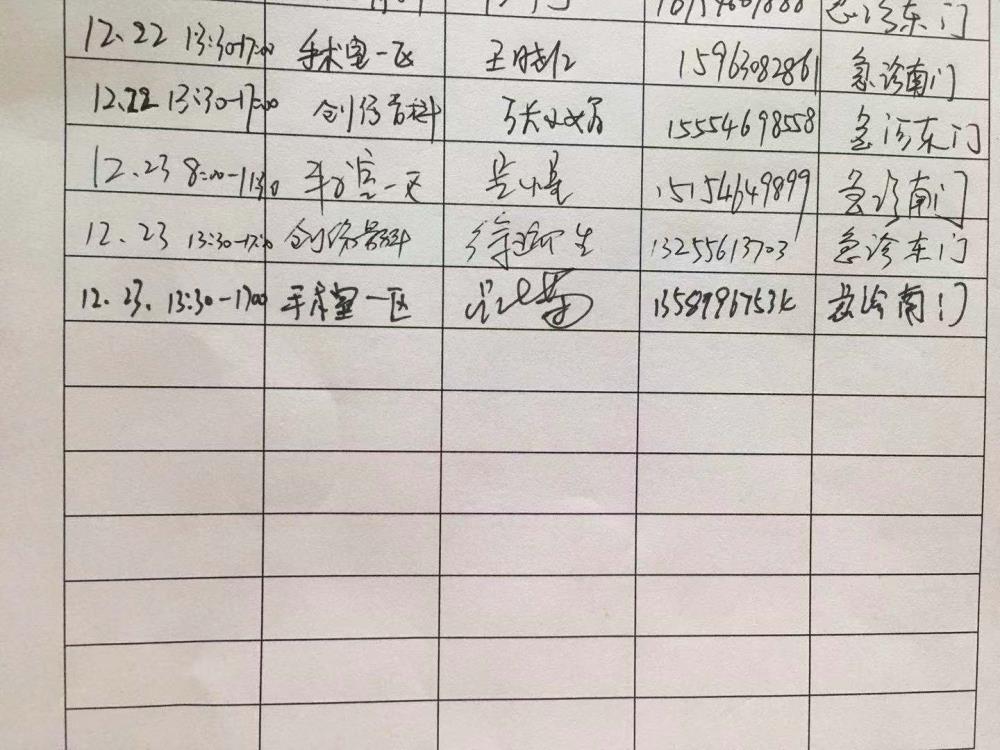 急诊东门
12.22 13:30-17:00 手术室一区 王晓仁 15963082861 急诊南门
12.22 13:30-17:00 创伤骨科 15554698558 急诊东门
12.23 8:00-11:30 手术室一区 15154649899 急诊南门
12.23 13:30-17:00 创伤骨科 13255613703 急诊东门
12.23. 13:30-17:00 手术室一区 急诊南门